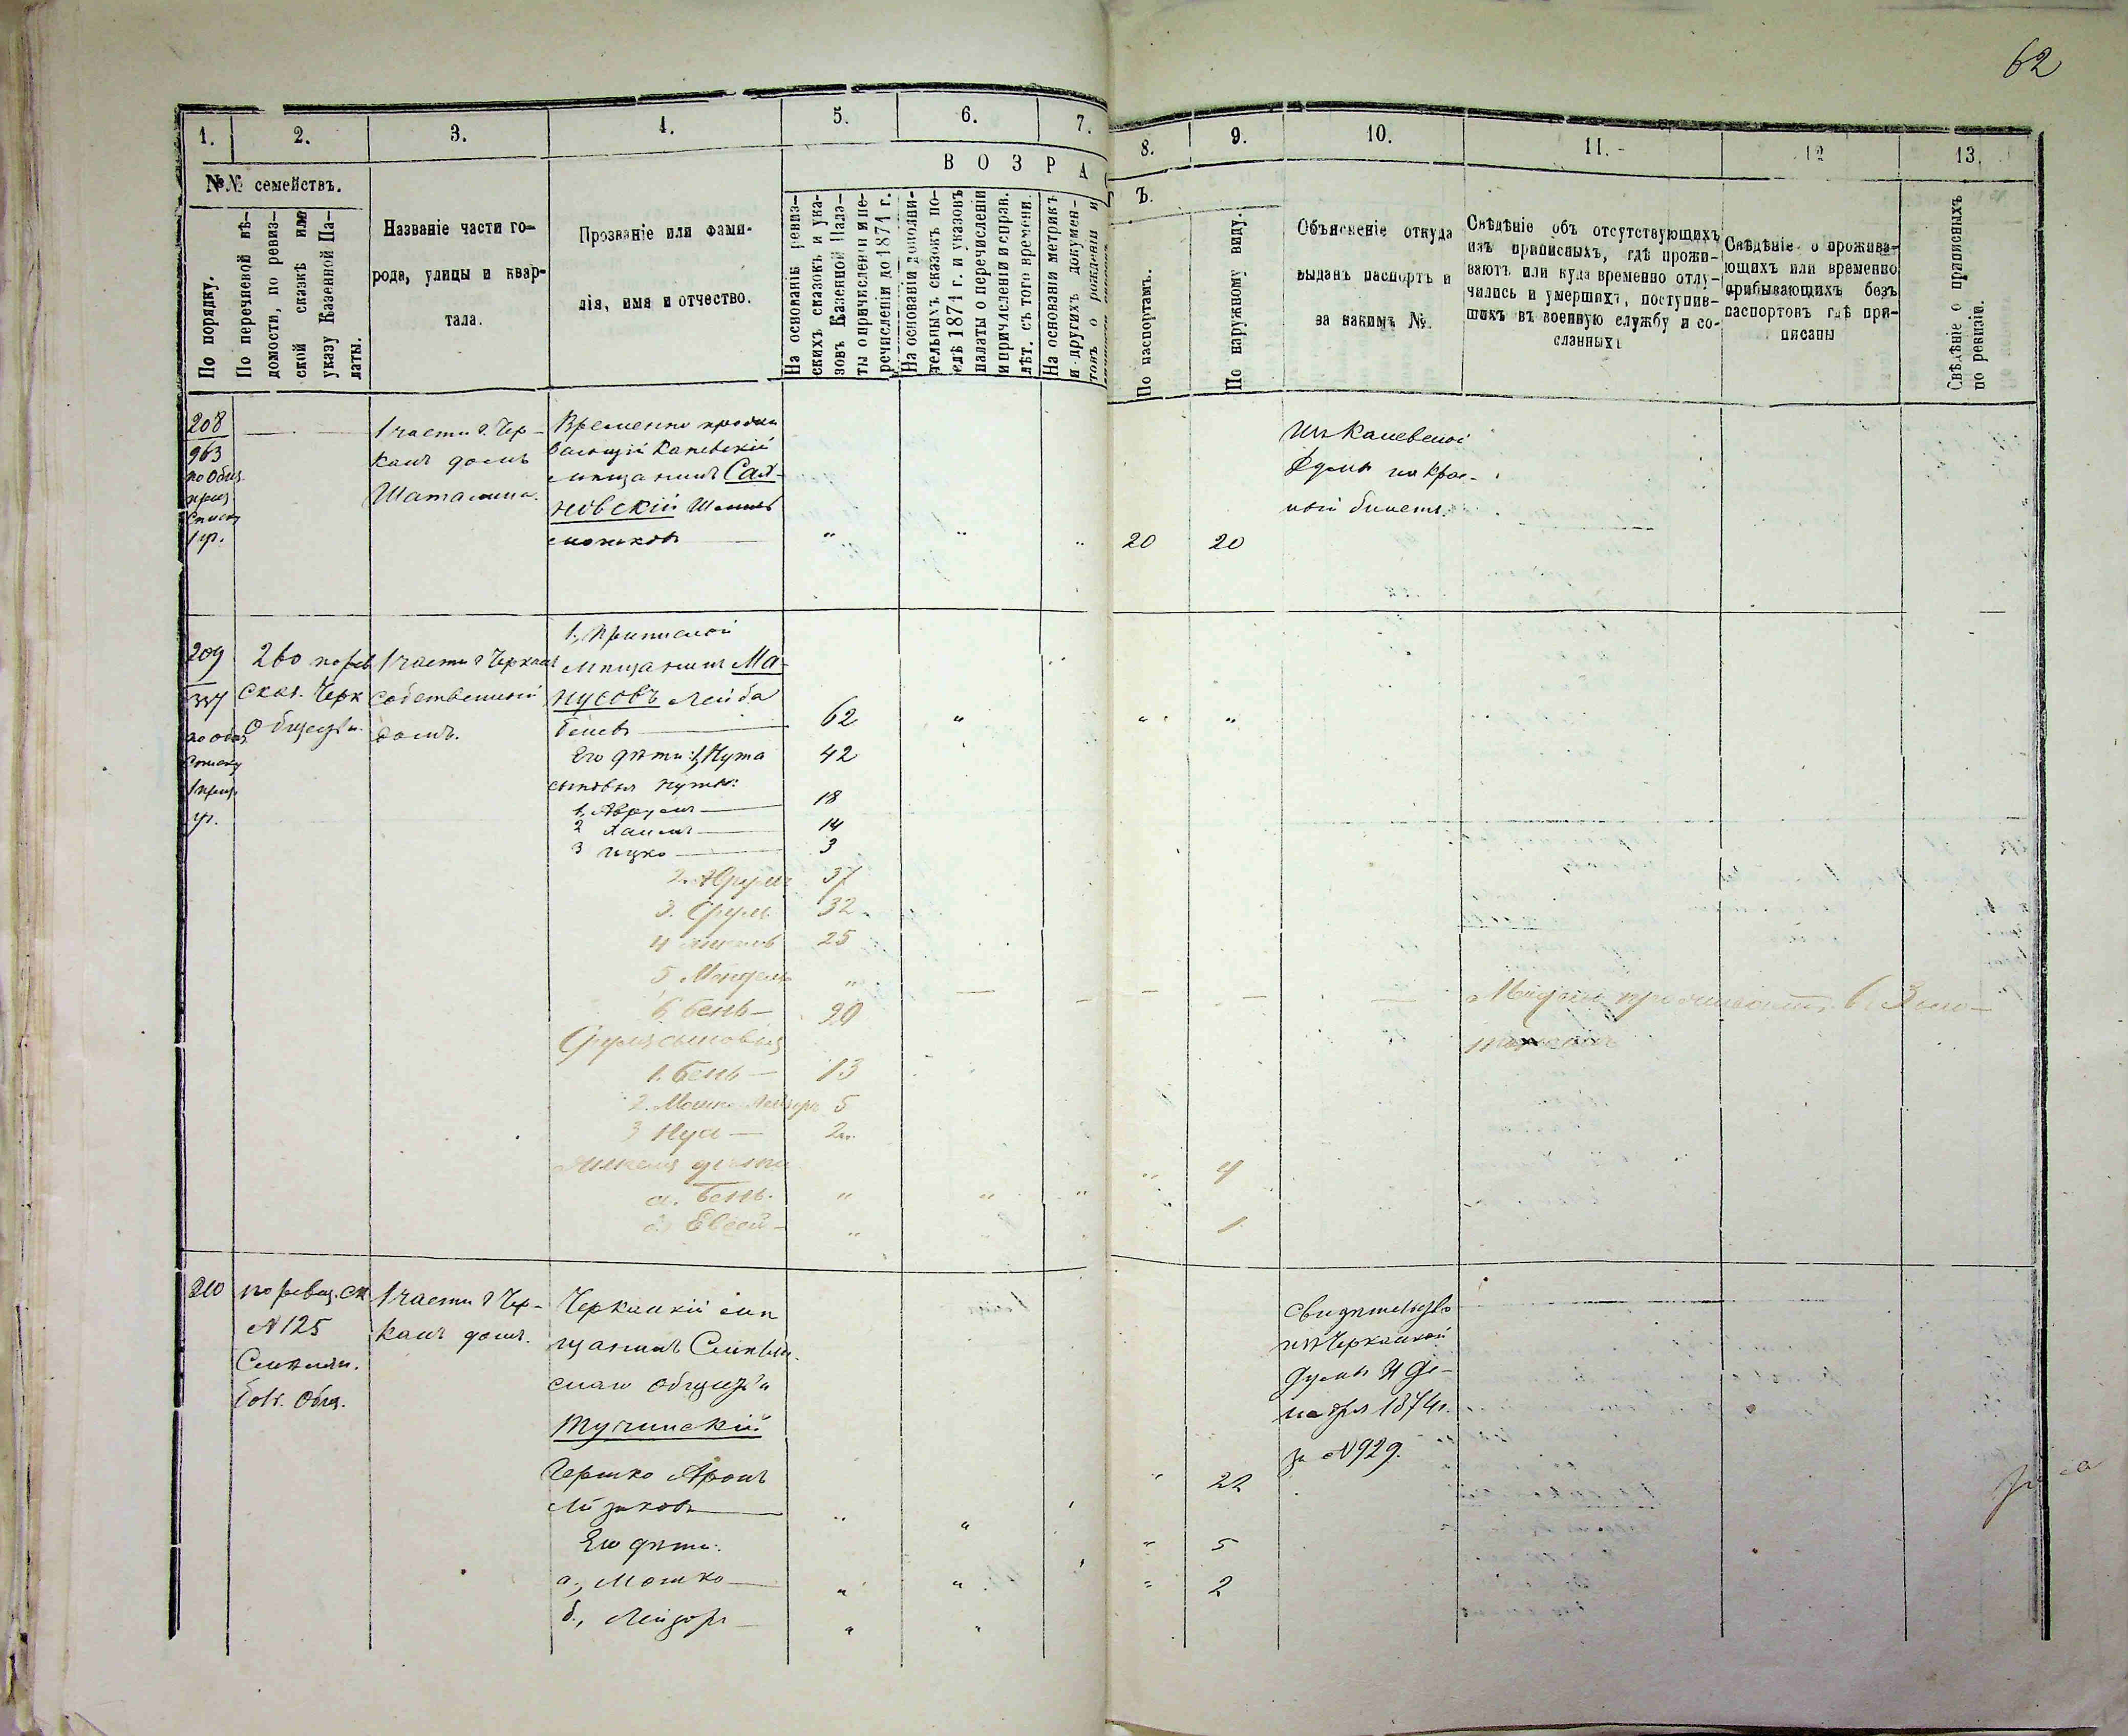 62
1. 2. 3. 4. 5. 6. 7. 8. 9. 10. 11. 12 13.
№№ семействъ.
По порядку.
По перечневой вѣ-
домости, по ревиз-
ской сказкѣ или
указу Казенной Па-
латы.
Названіе части го-
рода, улицы и квар-
тала.
Прозваніе или фами-
лія, имя и отчество.
ВОЗРА
На основаніи ревиз-
скихъ сказокъ и ука-
зовъ Казенной Пала-
ты о причисленіи и пе-
речисленіи до 1871 г.
На основаніи дополни-
тельныхъ сказокъ по-
слѣ 1871 г. и указовъ
палаты о перечисленіи
и причисленіи справ.
лѣт. съ того времени.
На основаніи метрикъ
и другихъ докумен-
товъ о рожденіи и
Ъ.
По паспортамъ.
По наружному виду.
Объясненіе откуда
выданъ паспортъ и
за какимъ №.
Свѣдѣніе объ отсутствующихъ
изъ приписныхъ, гдѣ прожи-
ваютъ или куда временно отлу-
чились и умершихъ, поступив-
шихъ въ военную службу и со-
сланныхъ
Свѣдѣніе о прожива-
ющихъ или временно
прибывающихъ безъ
паспортовъ гдѣ при-
писаны
Свѣдѣніе о приписныхъ
по ревизіи.
208
963
по Общ.
1 части г. Чер-
касъ домъ
Временно прожи
вающій Каневскій
мѣщанинъ Сах-
новскій
Мошковъ " " " 20 20
Изъ Каневской
Думы на Крас-
ный билетъ.
209
337
260 по рев.
сказ. Черк
Обществ.
1 части г. Черкасъ
собственный
домъ.
1, Приписной
мѣщанинъ Ма-
нусовъ Лейба
Беневъ 62 " " "
Его дѣти: 1, Нута 42
сыновья Нуты:
1, Аврумъ 18
2 Хаимъ 14
3 Ицко 3
2. Аврумъ 37
3. Сруль 32
4 25
5 Мендель "
6 Бень 20
Сруля сыновья
1. Бень 13
2. Мошко Лейзеръ 5
3 Нус 2
дѣти
а. Бень. " " " " 4
Евсей " 1
проживаетъ в Золо-
210
по ревиз. ск
№ 125
Смѣлян.
Общ.
1 части г. Чер-
касъ домъ.
Черкаскій мѣ
щанинъ Смѣлян
скаго Общества
Тучинскій
Гершко Аронъ
" " " 22
Его дѣти:
а, Мошко " " " 5
б, Лейзоръ " " " 2
Свидѣтельство
изъ Черкаской
Думы 4 Де-
кабря 1874 г.
за № 929.